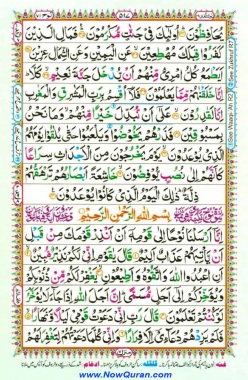 يُحَافِظُونَ ۝ أُولَٰئِكَ فِي جَنَّاتٍ مُّكْرَمُونَ ۝ فَمَالِ الَّذِينَ
كَفَرُوا قِبَلَكَ مُهْطِعِينَ ۝ عَنِ الْيَمِينِ وَعَنِ الشِّمَالِ عِزِينَ ۝
أَيَطْمَعُ كُلُّ امْرِئٍ مِّنْهُمْ أَن يُدْخَلَ جَنَّةَ نَعِيمٍ ۝ كَلَّا
إِنَّا خَلَقْنَاهُم مِّمَّا يَعْلَمُونَ ۝ فَلَا أُقْسِمُ بِرَبِّ الْمَشَارِقِ وَالْمَغَارِبِ
بِمَسْبُوقِينَ ۝ فَذَرْهُمْ يَخُوضُوا وَيَلْعَبُوا حَتَّىٰ يُلَاقُوا يَوْمَهُمُ
الَّذِي يُوعَدُونَ ۝ يَوْمَ يَخْرُجُونَ مِنَ الْأَجْدَاثِ سِرَاعًا
كَأَنَّهُمْ إِلَىٰ نُصُبٍ يُوفِضُونَ ۝ خَاشِعَةً أَبْصَارُهُمْ تَرْهَقُهُمْ
ذِلَّةٌ ذَٰلِكَ الْيَوْمُ الَّذِي كَانُوا يُوعَدُونَ ۝
بِسْمِ اللَّهِ الرَّحْمَٰنِ الرَّحِيمِ
إِنَّا أَرْسَلْنَا نُوحًا إِلَىٰ قَوْمِهِ أَنْ أَنذِرْ قَوْمَكَ مِن قَبْلِ
أَن يَأْتِيَهُمْ عَذَابٌ أَلِيمٌ ۝ قَالَ يَا قَوْمِ إِنِّي لَكُمْ نَذِيرٌ مُّبِينٌ ۝
أَنِ اعْبُدُوا اللَّهَ وَاتَّقُوهُ وَأَطِيعُونِ ۝ يَغْفِرْ لَكُم مِّن ذُنُوبِكُمْ
وَيُؤَخِّرْكُمْ إِلَىٰ أَجَلٍ مُّسَمًّى إِنَّ أَجَلَ اللَّهِ إِذَا جَاءَ لَا يُؤَخَّرُ
لَوْ كُنتُمْ تَعْلَمُونَ ۝ قَالَ رَبِّ إِنِّي دَعَوْتُ قَوْمِي لَيْلًا وَنَهَارًا ۝
فَلَمْ يَزِدْهُمْ دُعَائِي إِلَّا فِرَارًا ۝ وَإِنِّي كُلَّمَا دَعَوْتُهُمْ لِتَغْفِرَ لَهُمْ
www.NowQuran.com